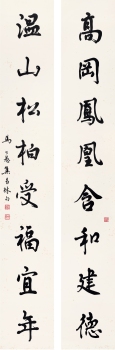 高岡鳳凰含和建德
温山松柏受福宜年